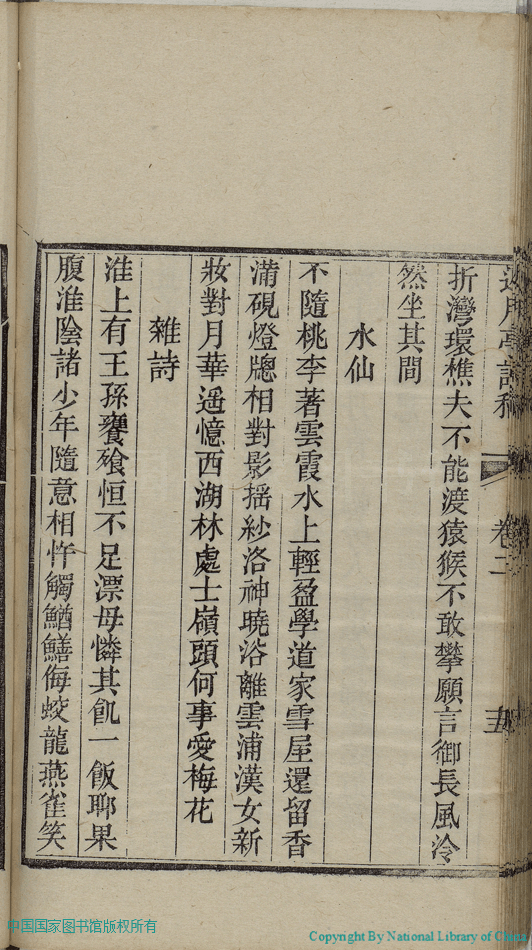 折灣環樵夫不能渡猿猴不敢攀願言御長風泠
然坐其間
水仙
不隨桃李著雲霞水上輕盈學道家雪屋還留香
滿硯燈牕相對影搖紗洛神曉浴離雲浦漢女新
妝對月華遥憶西湖林處士嶺頭何事愛梅花
雜詩
淮上有王孫饔飱恒不足漂母憐其飢一飯聊果
腹淮陰諸少年隨意相忤觸鰌鱔侮蛟龍燕雀笑
卷二
中国国家图书馆版权所有
Copyright By National Library of China